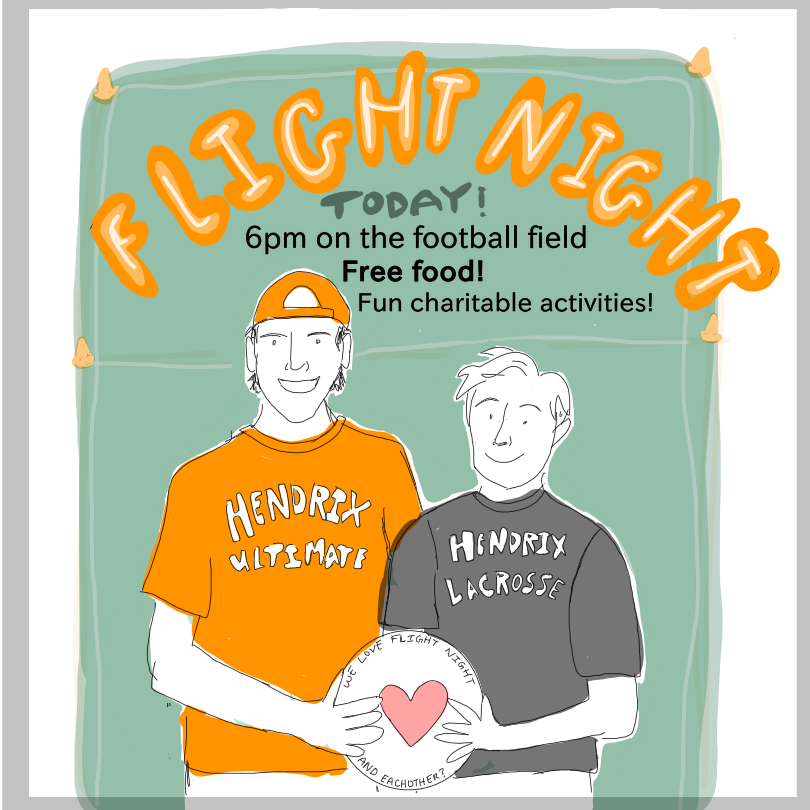 FLIGHT NIGHT
TODAY!
6pm on the football field
Free food!
Fun charitable activities!
HENDRIX
ULTIMATE
HENDRIX
LACROSSE
WE LOVE FLIGHT NIGHT
AND EACHOTHER?